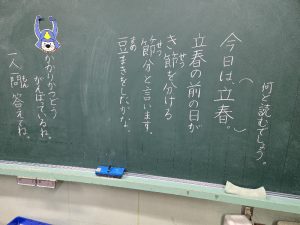 何と読むでしょう。
今日は、立春。
立春の前の日が
き節を分ける
せつ
節分と言います。
せつ
豆まきをしたかな。
まめ
かかりかつどう
がんばっているね。
一人一問答えてね。
もん